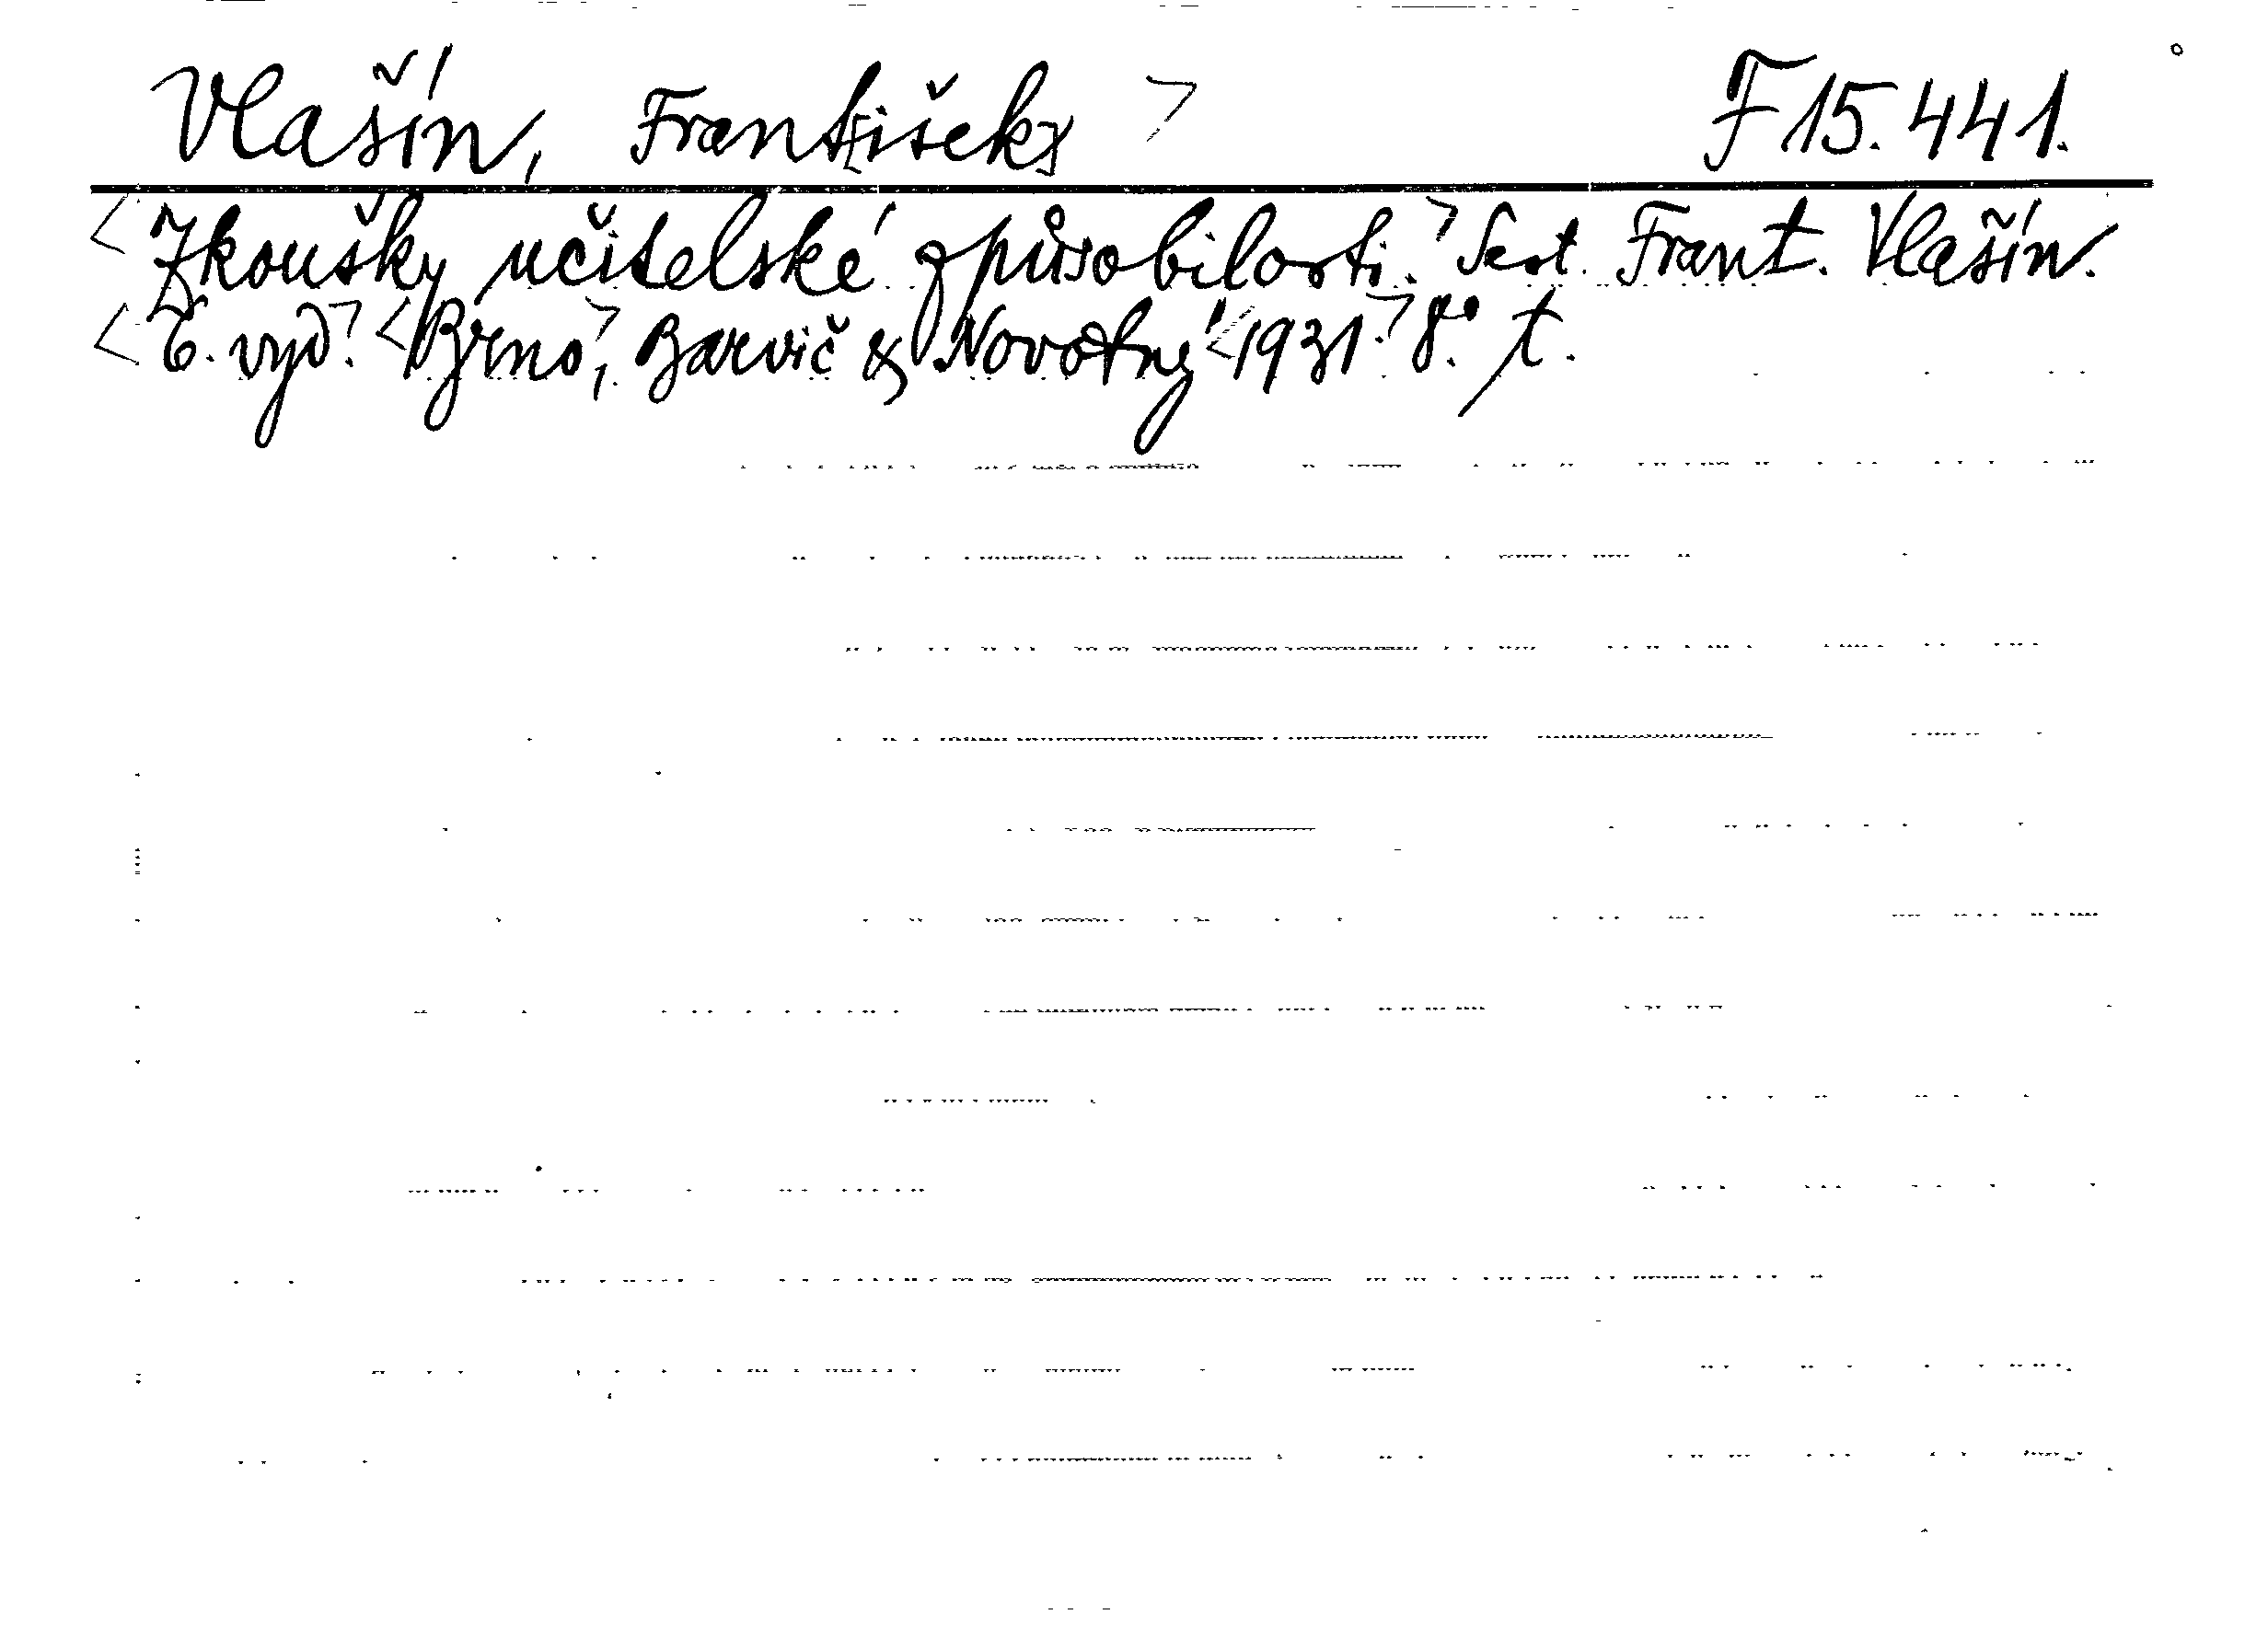 Vlašín, Frant[išek] > F 15.441.
<Zkoušky učitelské způsobilosti.> Sest. Frant. Vlašín.
<6. vyd.> <Brno>, Barvič & Novotný <1931.> 8.° t.